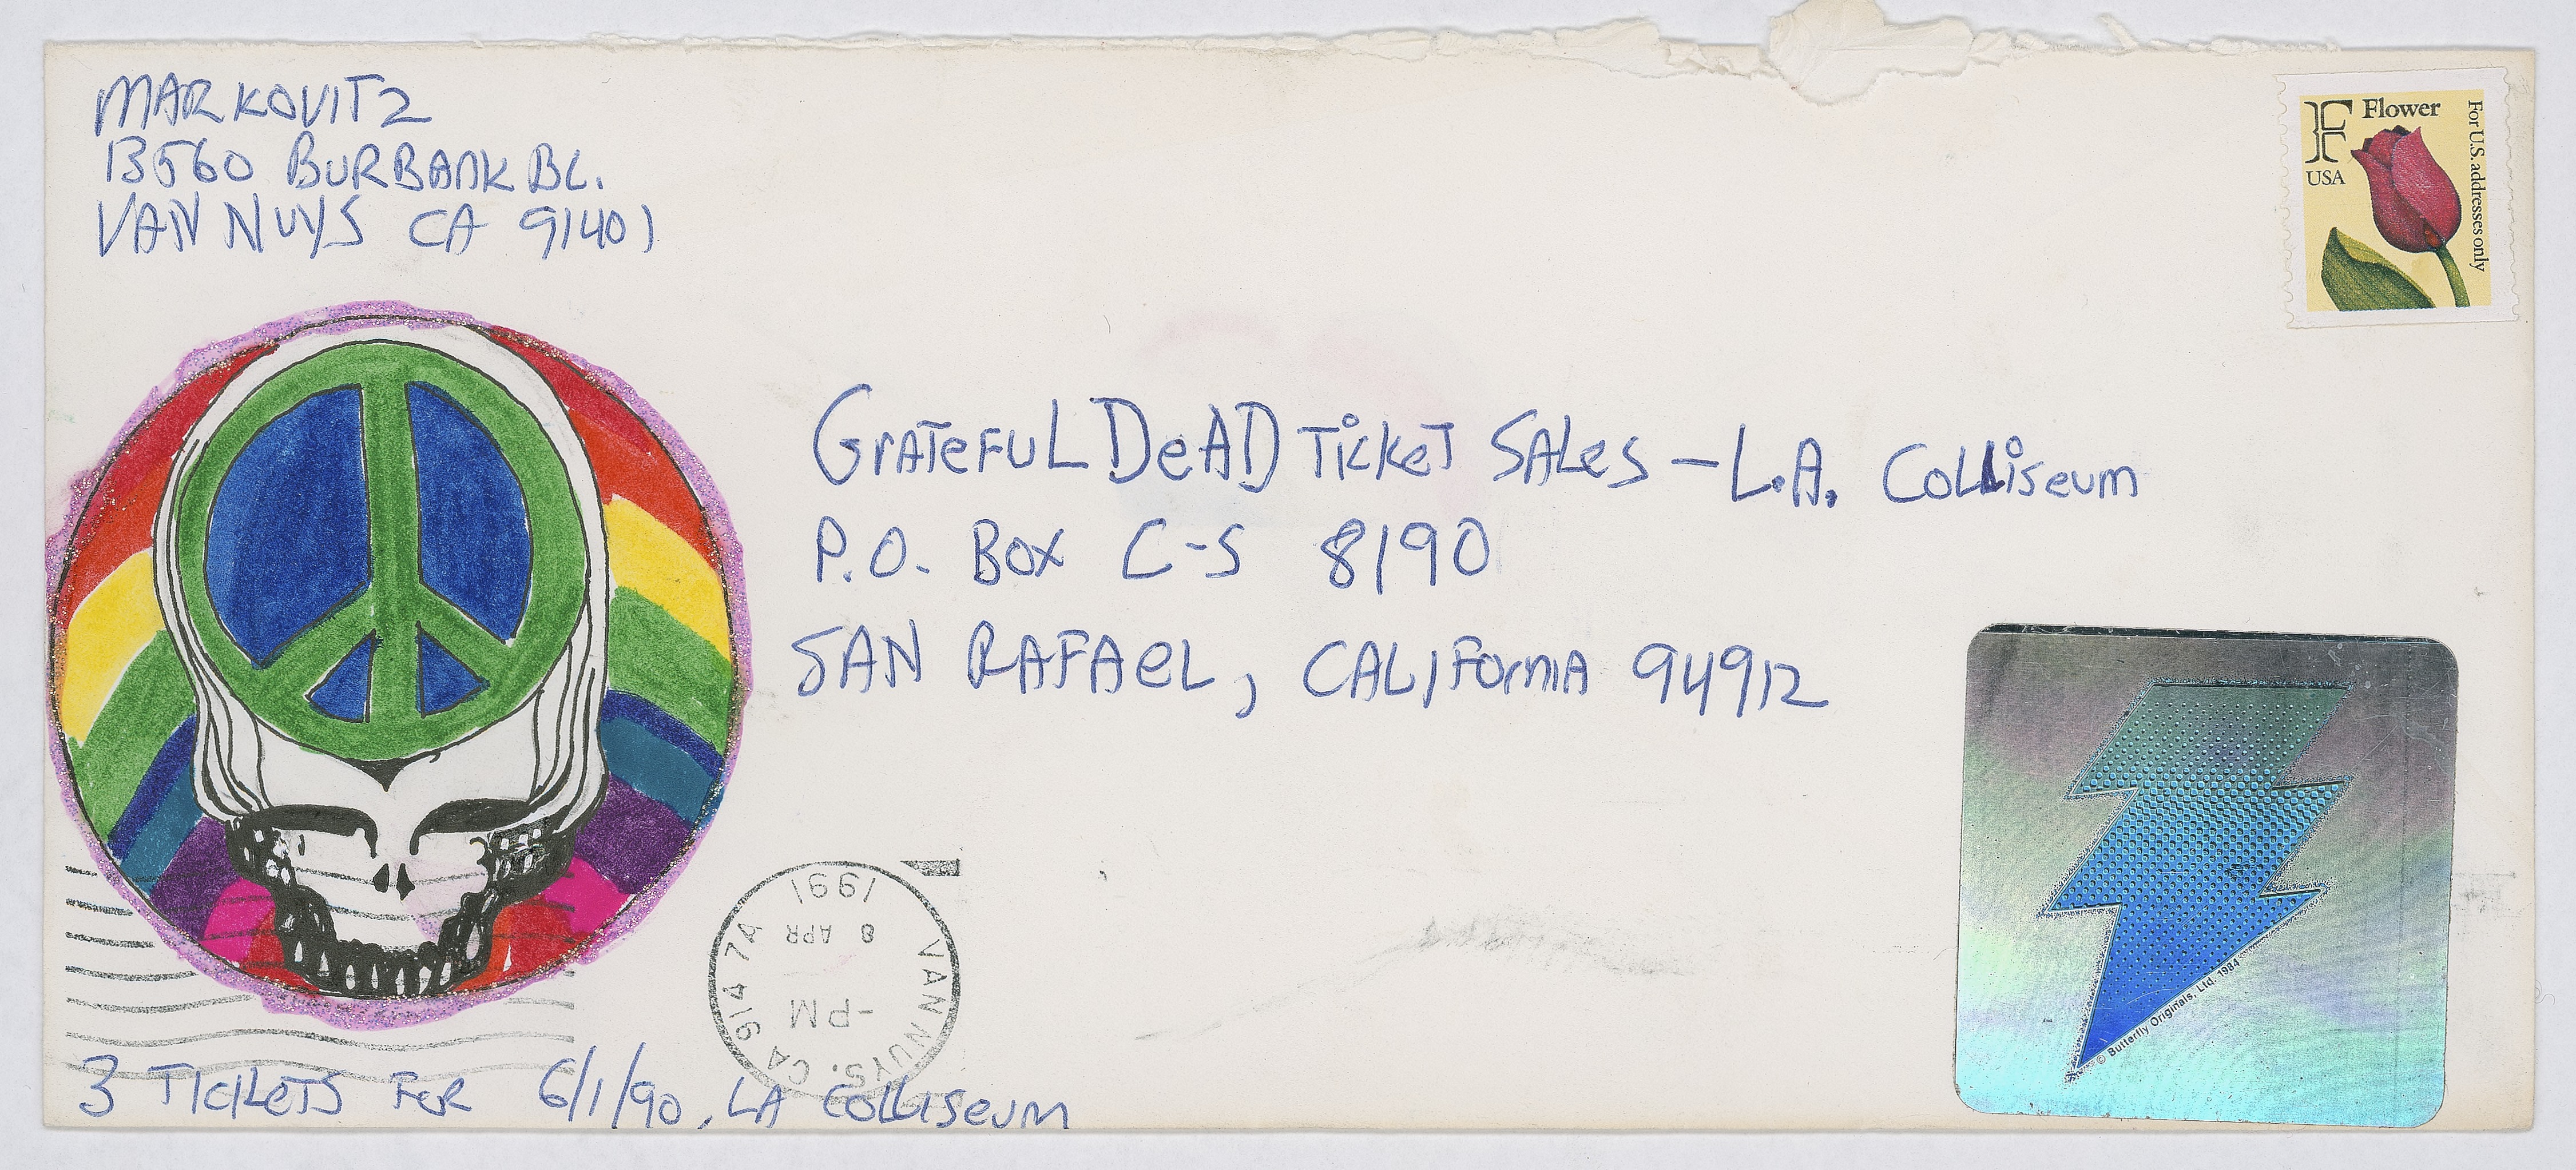 MARKOVITZ
13560 BURBANK BL.
VAN NUYS CA 91401
F Flower
USA
For U.S. addresses only
GrATeFUL DeAD TickeT SALes - L.A. Colliseum
P.O. Box C-S 8190
SAN RAFAeL, CALIFornia 94912
VAN NUYS, CA 914 7A
-PM
8 APR
1991
© Butterfly Originals, Ltd. 1984
3 TICKETS FOR 6/1/90, LA COLLISEUM